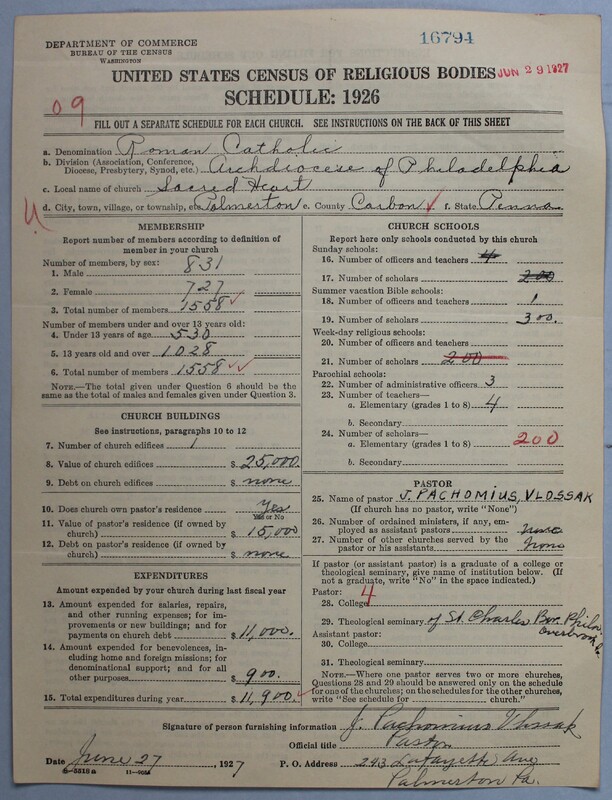 16794
DEPARTMENT OF COMMERCE
BUREAU OF THE CENSUS
WASHINGTON
UNITED STATES CENSUS OF RELIGIOUS BODIES JUN 29 1927
SCHEDULE: 1926
09
FILL OUT A SEPARATE SCHEDULE FOR EACH CHURCH. SEE INSTRUCTIONS ON THE BACK OF THIS SHEET
a. Denomination Roman Catholic
b. Division (Association, Conference, Diocese, Presbytery, Synod, etc.) Archdiocese of Philadelphia
c. Local name of church Sacred Heart
d. City, town, village, or township, etc. Palmerton e. County Carbon ✓ f. State Penna
MEMBERSHIP
Report number of members according to definition of
member in your church
Number of members, by sex:
1. Male 831
2. Female 727
3. Total number of members 1558 ✓
Number of members under and over 13 years old:
4. Under 13 years of age 530
5. 13 years old and over 1028
6. Total number of members 1558 ✓✓
NOTE.—The total given under Question 6 should be
same as the total of males and females given under Question 3.
CHURCH BUILDINGS
See instructions, paragraphs 10 to 12
7. Number of church edifices 1
8. Value of church edifices $ 25,000.
9. Debt on church edifices $ none
10. Does church own pastor's residence Yes
Yes or No
11. Value of pastor's residence (if owned by
church) $ 15,000
12. Debt on pastor's residence (if owned by
church) $ none
EXPENDITURES
Amount expended by your church during last fiscal year
13. Amount expended for salaries, repairs,
and other running expenses; for im-
provements or new buildings; and for
payments on church debt $ 11,000.
14. Amount expended for benevolences, in-
cluding home and foreign missions; for
denominational support; and for all
other purposes $ 900.
15. Total expenditures during year $ 11,900. ✓
CHURCH SCHOOLS
Report here only schools conducted by this church
Sunday schools:
16. Number of officers and teachers 4
17. Number of scholars 200
Summer vacation Bible schools:
18. Number of officers and teachers 1
19. Number of scholars 300.
Week-day religious schools:
20. Number of officers and teachers
21. Number of scholars 200
Parochial schools:
22. Number of administrative officers 3
23. Number of teachers—
a. Elementary (grades 1 to 8) 4
b. Secondary
24. Number of scholars—
a. Elementary (grades 1 to 8) 200
b. Secondary
PASTOR
25. Name of pastor J. PACHOMIUS, VLOSSAK
(If church has no pastor, write "None")
26. Number of ordained ministers, if any, em-
ployed as assistant pastors None
27. Number of other churches served by the
pastor or his assistants None
If pastor (or assistant pastor) is a graduate of a college or
theological seminary, give name of institution below. (If
not a graduate, write "No" in the space indicated.)
Pastor:
28. College 4
29. Theological seminary of St. Charles Bor. Phila
Overbrook
Assistant pastor:
30. College
31. Theological seminary
NOTE.—Where one pastor serves two or more churches,
Questions 28 and 29 should be answered only on the schedule
for one of the churches; on the schedules for the other churches,
write "See schedule for church."
Signature of person furnishing information J. Pachomius Vlossak
Official title Pastor
Date June 27, 1927 P. O. Address 243 Lafayette Ave
Palmerton Pa.